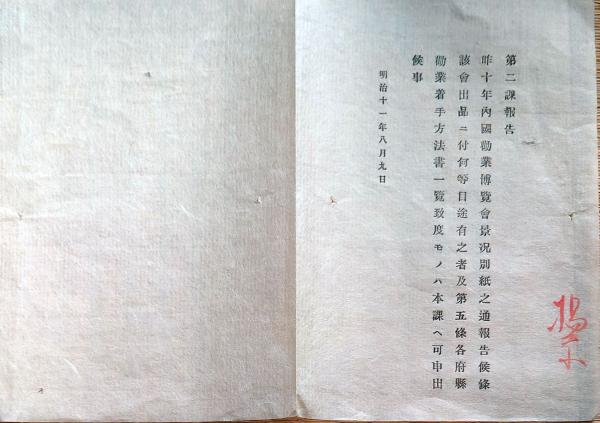 第二課報告
昨十年內國勸業博覽會景况別紙之通報告候條
該會出品ニ付何等目途有之者及第五條各府縣
勸業着手方法書一覽致度モノハ本課ヘ可申出
候事
明治十一年八月九日